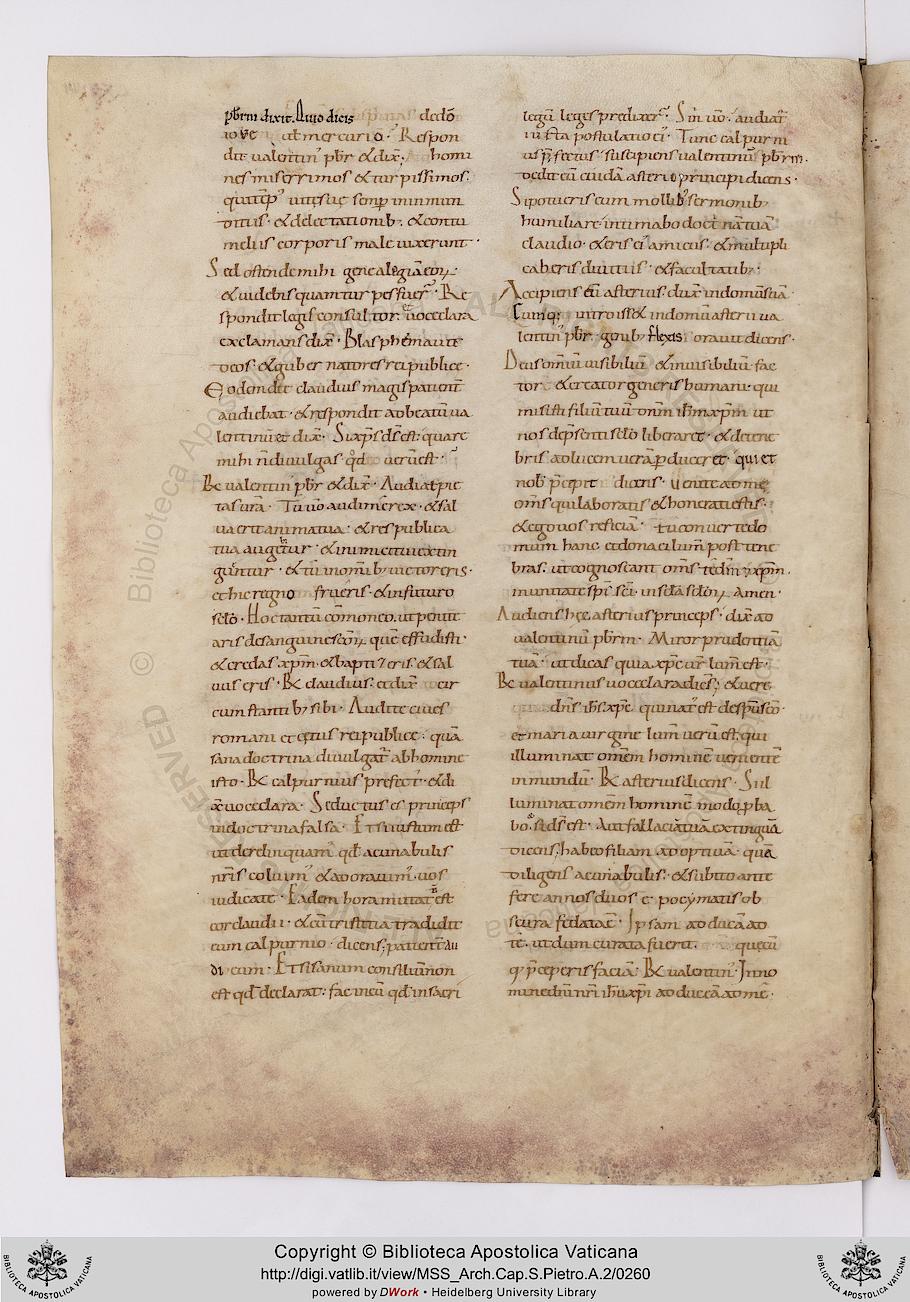 pb̄rm dixit. Quid dicis de dō
iove ut mercurio. Respon
dit valentin' pb̄r & dix̄. homi
nes miserrimos & turpissimos.
qui tēp̄ vite sue semp̄ in inmun
ditiis. & delectationib. & contu
melius corporis male vixerunt.
Sed ostende mihi genealogiā eoꝝ.
& videbis quam turpes fuer̄. Re
spondit legis consultor. voce clara
exclamans dix̄. Blasphemavit
deos. & gubernatores rei publice.
Eodem die claudius magis patient̄
audiebat. & respondit ad beatū va
lentinū et dix̄. Si xp̄s d̄s est. quare
mihi n̄ divulgas qd̄ verū est.
R̄ valentin' pb̄r & dix̄. Audiat pie
tas vr̄a. Tu v̄o audi me rex. & sal
va erit anima tua. & res publica
tua augetur. & inimici tui extin
guntur. & tu in omīb; victor eris.
et hic regno frueris. & in futuro
sclo. Hoc tantū cōmoneo. ut penite
aris de sanguine scōꝝ quē effudisti.
& credas xp̄m. & baptizeris. & sal
vus eris. R̄ claudius. et dix̄ cir
cum stantib; sibi. Audite cives
romani et cetus rei publice. quā
sana doctrina divulgat̄ ab homine
isto. R̄ calpurnius prefect'. & di
x̄ voce clara. Seductus es princeps
in doctrina falsa. Et si iustum est
ut derelinquam' qd̄ a cunabulis
nr̄is coluim' & adoravim'. vos
iudicate. Eadem hora mutat' est
cor claudii. & cū tristitia tradidit
eum calpurnio. dicens; patient̄ au
di eum. Et si sanum consiliū non
est qd̄ declarat. fac in eū qd̄ in sacri
legū leges predixer̄. Sin v̄o. audiat̄
iusta postulatio ei'. Tunc calpurni
us p̄fectus suscipiens valentinū pb̄rm.
dedit eū cuidā asterio principi dicens.
Si potueris eum mollib; sermonib;
humiliare. intimabo doct̄nā tuā
claudio. & eris ei amicus. & multipli
caberis divitiis. & facultatib;.
Accipiens eū asterius. dux̄ in domū suā.
Cumq; introiss& in domū asterii va
lentin' pb̄r. genib; flexis oravit dicens.
Deus omiū visibiliū & invisibiliū fac
tor. & creator generis humani. qui
misisti filiū tuū dnm̄ ihm̄ xp̄m ut
nos de p̄senti sclo liberaret. & de tene
bris ad lucem verā p̄duceret. qui et
nob' p̄cepit dicens. venite ad me
om̄s qui laboratis & honerati estis.
& ego vos reficiā. tu converte do
mum hanc. et dona ei lum̄ post tene
bras. ut cognoscant om̄s te dm̄ & xp̄m.
in unitate sp̄s sc̄i in scl̄a scloꝝ. Amen.
Audiens hec asterius princeps. dix̄ ad
valentinū pb̄rm. Miror prudentiā
tuā. ut dicas quia xp̄c vr̄ lum̄ est.
R̄ valentinus voce clara dicēs; & vere
dn̄s ih̄s xp̄c. qui nat' est de sp̄u sc̄o
et maria virgine lum̄ verū est. qui
illuminat omēm hominē venientē
in mundū. R̄ asterius dicens. Si il
luminat omēm hominē modo p̄ba
bo. si d̄s est. Aut fallaciā tuā extinguā
dicens; habeo filiam adoptivā. quā
diligens a cunabulis. & subito ante
fere annos duos e. pocymatis ob
scura facta ē. Ipsam adducā ad
te. ut dum curata fuerit. quecū
q; p̄ceperis faciā. R̄ valentin'. In no
mine dn̄i nr̄i ih̄u xp̄i adducā ad me.
Copyright © Biblioteca Apostolica Vaticana
http://digi.vatlib.it/view/MSS_Arch.Cap.S.Pietro.A.2/0260
powered by DWork • Heidelberg University Library
BIBLIOTECA APOSTOLICA VATICANA
BIBLIOTECA APOSTOLICA VATICANA